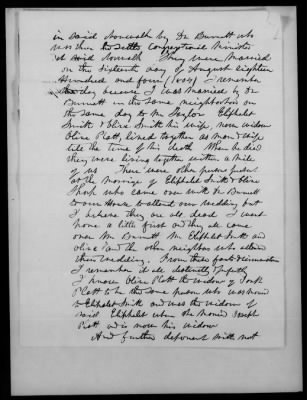 in said Norwalk by Dr Burnett who
was then the settled congregational Minister
at said Norwalk They were Married
on the sixteenth day of August eighteen
Hundred and four (1804) I remember
the day because I was Married by Dr
Burnett in the same neighborhood on
the same day to Mr Taylor Eliphelet
Smith & Olive Smith his wife, now widow
Olive Platt, lived together as man & wife
till the time of his death When he died
they were living together within a mile
of us There were other persons present
at the marriage of Eliphelet Smith & Olive
who came over with Dr Burnett
to our House to attend our wedding but
I believe they are all dead I went
home a little first and they all came
over Mr Burnett Mr Eliphelet Smith and
Olive and the other neighbors who attended
their wedding. From these facts & circumstances
I remember it all distinctly & perfectly
I know Olive Platt the widow of Joseph
Platt to be the same person who was married
to Eliphelet Smith and was the widow of
said Eliphelet when she married Joseph
Platt and is now his widow
And further deponent saith not